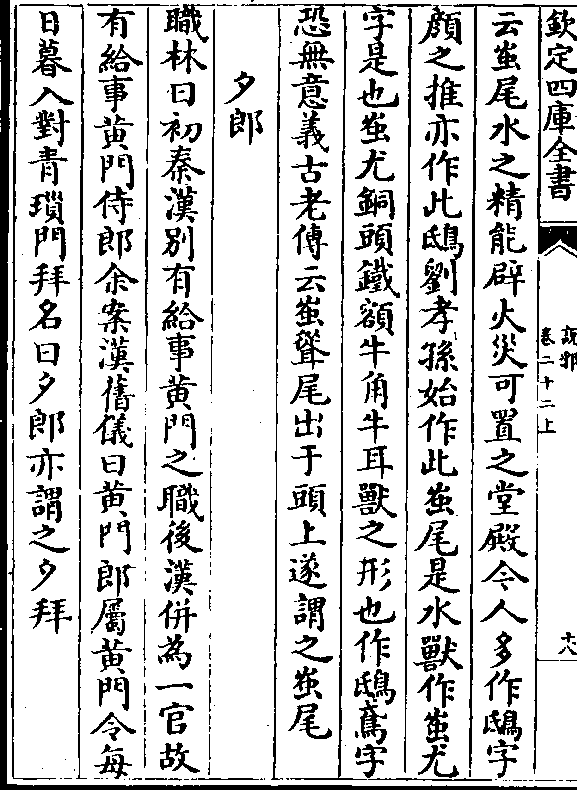 欽定四庫全書
說郛
卷二十二上
十八
云蚩尾水之精能辟火災可置之堂殿今人多作鴟字
顔之推亦作此鴟劉孝孫始作此蚩尾是水獸作蚩尤
字是也蚩尤銅頭鐵額牛角牛耳獸之形也作鴟鳶字
恐無意義古老傳云蚩聳尾出于頭上遂謂之蚩尾
夕郎
職林曰初秦漢别有給事黄門之職後漢併為一官故
有給事黄門侍郎余案漢舊儀曰黄門郎屬黄門令每
日暮入對青瑣門拜名曰夕郎亦謂之夕拜